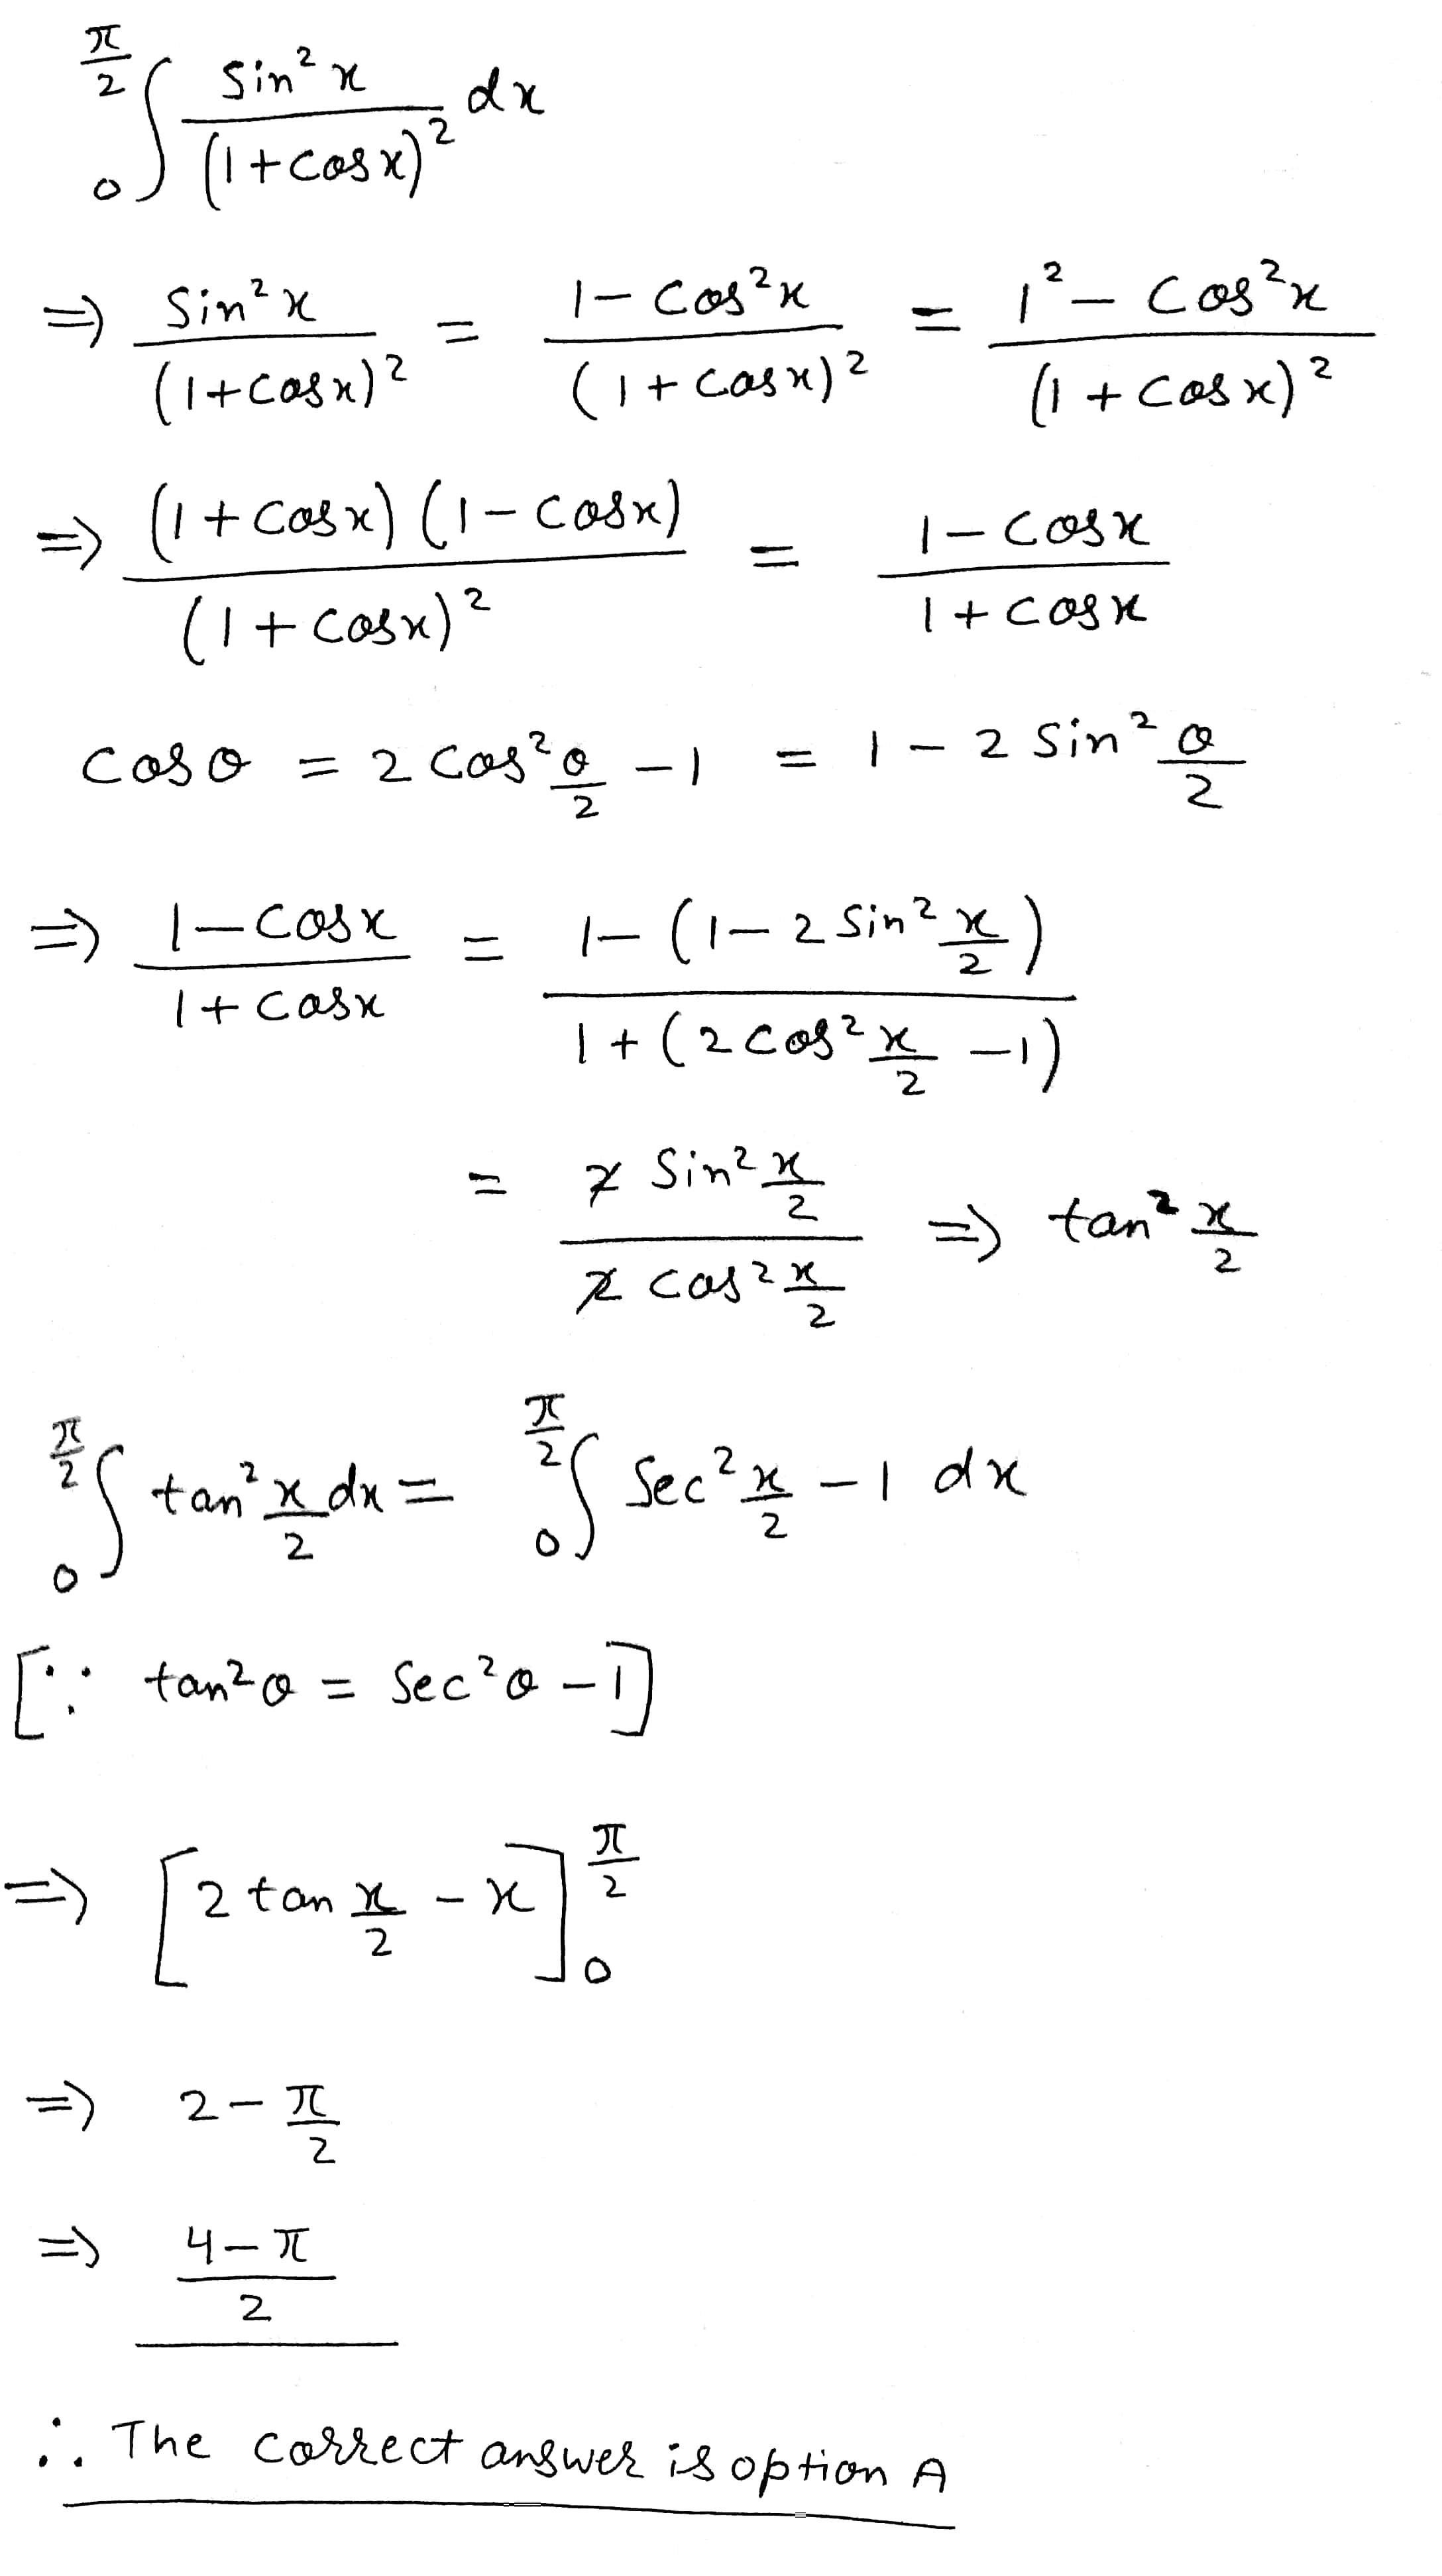 ∫₀^(π/2) sin²x / (1+cosx)² dx
⇒ sin²x / (1+cosx)² = 1-cos²x / (1+cosx)² = 1²-cos²x / (1+cosx)²
⇒ (1+cosx)(1-cosx) / (1+cosx)² = 1-cosx / 1+cosx
cosθ = 2cos²θ/2 -1 = 1-2sin²θ/2
⇒ 1-cosx / 1+cosx = 1-(1-2sin²x/2) / 1+(2cos²x/2 -1)
= 2sin²x/2 / 2cos²x/2 ⇒ tan²x/2
∫₀^(π/2) tan²x/2 dx = ∫₀^(π/2) sec²x/2 -1 dx
[∵ tan²θ = sec²θ -1]
⇒ [2tan x/2 - x]₀^(π/2)
⇒ 2-π/2
⇒ 4-π / 2
∴ The correct answer is option A